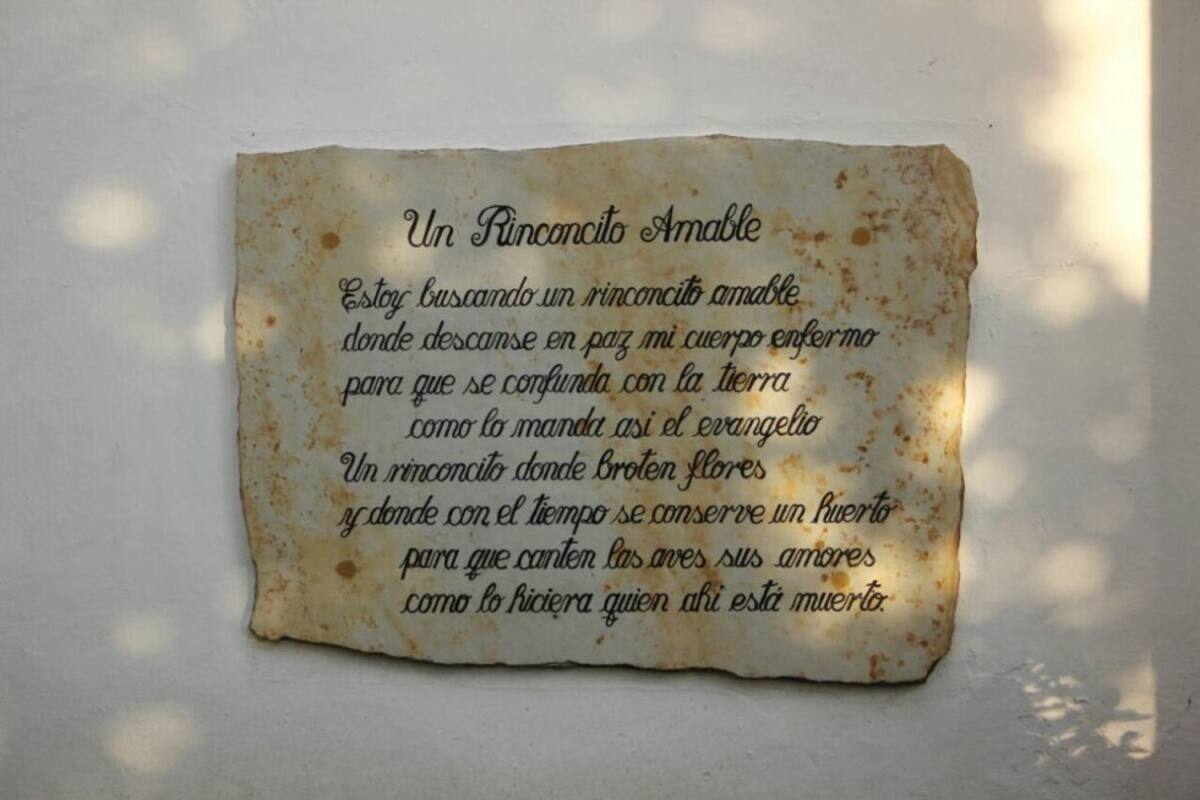 Un Rinconcito Amable
Estoy buscando un rinconcito amable
donde descanse en paz mi cuerpo enfermo
para que se confunda con la tierra
como lo manda asi el evangelio
Un rinconcito donde broten flores
y donde con el tiempo se conserve un huerto
para que canten las aves sus amores
como lo hiciera quien ahi está muerto.